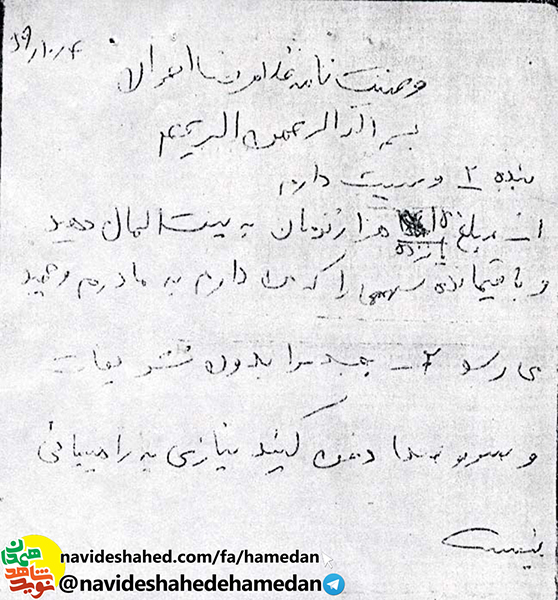 ۵۹/۱۰/۴
وصیت نامه غلامرضا
بسم الله الرحمن الرحیم
بنده ۲ وصیت دارم
از مبلغ ۱۵ هزار تومان به بیت المال دهید
پانزده
و باقیمانده سهمی را که من دارم به مادرم و حمید
می رسد ۲ــ جسد مرا بدون تشریفات
و سر و صدا دفن کنید نیازی به راهپیمائی
نیست
نوید شاهد همدان
navideshahed.com/fa/hamedan
@navideshahedehamedan